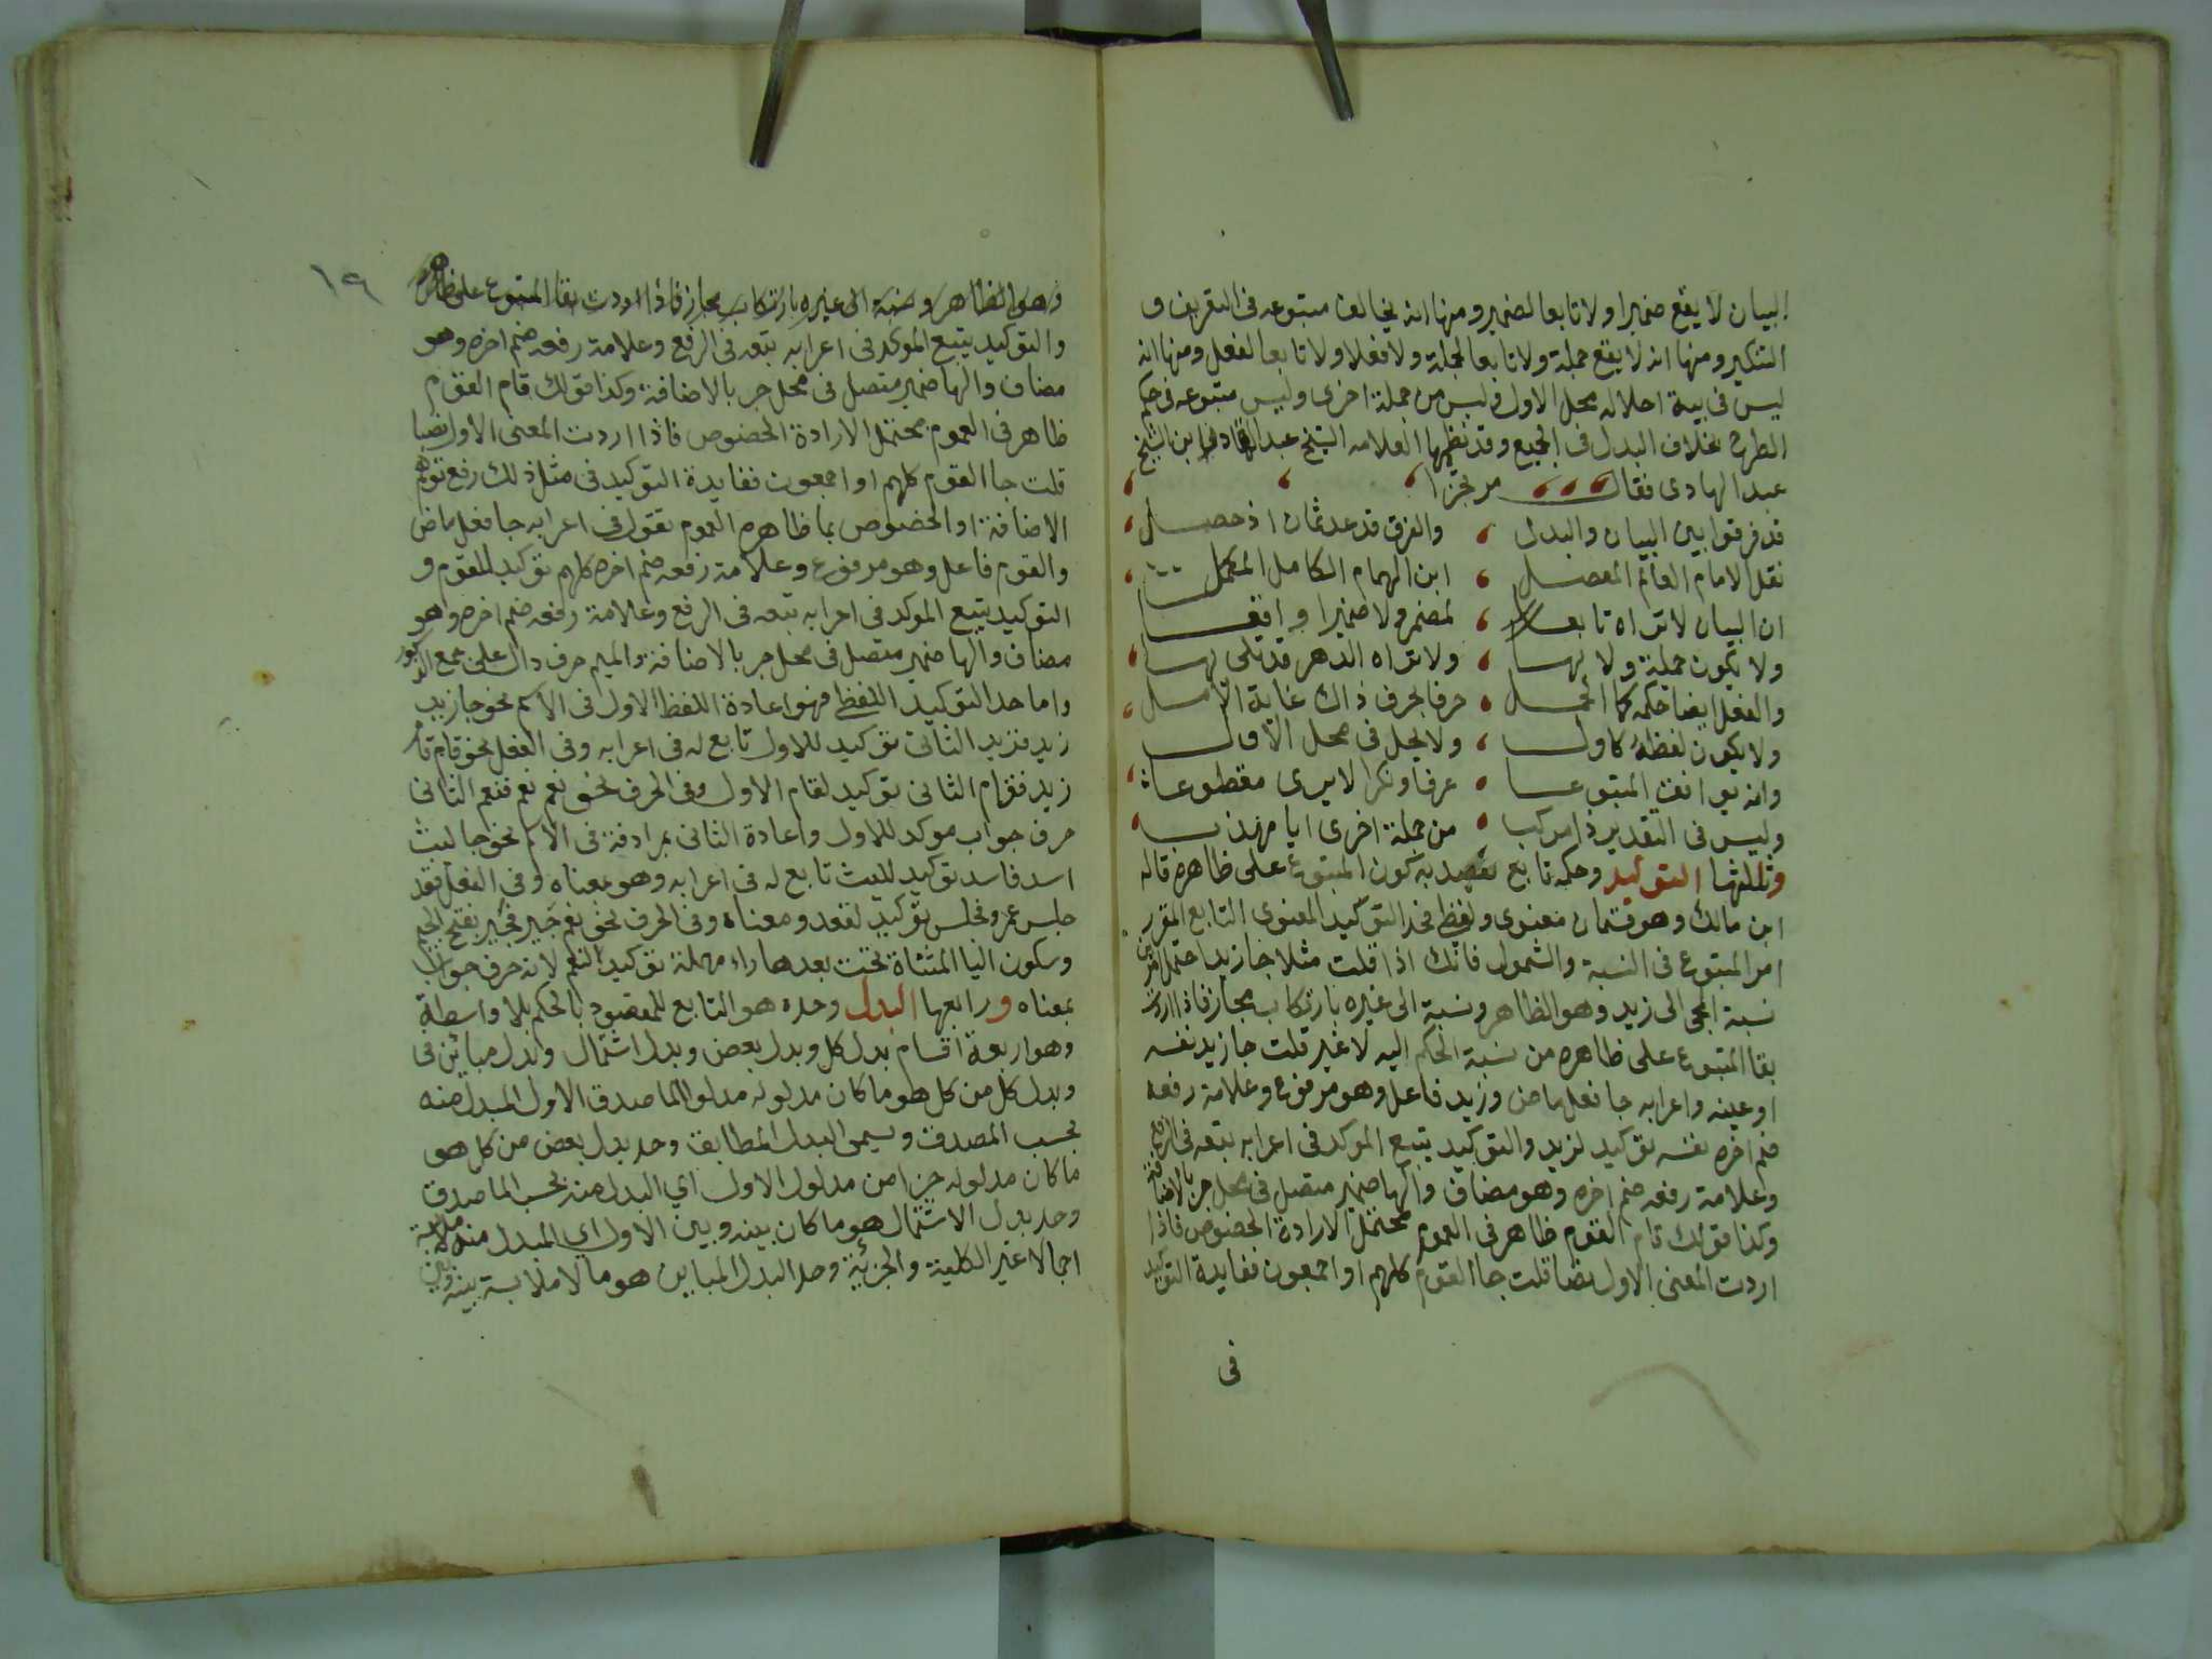 البيان لا يقع ضميرا ولا تابعا لضمير ومنها انه يخالف متبوعه فى التعريف و
التنكير ومنها انه لا يقع جملة ولا تابعا لجملة ولا فعلا ولا تابعا لفعل ومنها انه
ليس فى نية احلاله محل الاول وليس من جملة اخرى وليس متبوعه فى حكم
الطرح بخلاف البدل فى الجميع وقد نظمها العلامه الشيخ عبد القادر ابن الشيخ
عبد الهادى فقال مرتجزا
قد فرقوا بين البيان والبدل ، والفرق قد عد ثمان اذ حصل
نقل الامام العالم المفضل ، ابن الهمام الكامل المكمل
ان البيان لا تراه تابعا ، لمضمر ولا ضميرا واقعا
ولا يكون جملة ولا لها ، ولا تراه الدهر قد تلى لها
والفعل ايضا حكمه كا الجمل ، حرفا بحرف ذاك غاية الامل
ولا يكون لفظه كاول ، ولا يحل فى محل الاول
وانه يوافق المتبوعا ، عرفا ونكرا لا يرى مقطوعا
وليس فى التقدير ذا مركب ، من جملة اخرى ايا مهذب
وثالثها التوكيد وحكمه تابع يقصد به كون المتبوع على ظاهره قاله
ابن مالك وهو قسمان معنوى ولفظى فحد التوكيد المعنوى التابع المقرر
امر المتبوع فى النسبة والشمول فانك اذا قلت مثلا جا زيد احتمل امرين
نسبة المجى الى زيد وهو الظاهر ونسبة الى غيره بارتكاب مجاز فاذا اردت
بقا المتبوع على ظاهره من نسبة الحكم اليه لا غير قلت جا زيد نفسه
او عينه واعرابه جا فعل ماض وزيد فاعل وهو مرفوع وعلامة رفعه
ضم اخره نفسه توكيد لزيد والتوكيد يتبع الموكد فى اعرابه تبعه فى الرفع
وعلامة رفعه ضم اخره وهو مضاف والها ضمير متصل فى محل جر بالاضافة
وكذا قولك قام القوم ظاهر فى العموم محتمل الارادة الخصوص فاذا
اردت المعنى الاول نصا قلت جا القوم كلهم او اجمعون ففايدة التوكيد
فى
١٩
وهو الظاهر ونسبة الى غيره بارتكاب مجاز فاذا اردت بقا المتبوع على ظاهره
والتوكيد يتبع الموكد فى اعرابه تبعه فى الرفع وعلامة رفعه ضم اخره وهو
مضاف والها ضمير متصل فى محل جر بالاضافة وكذا قولك قام القوم
ظاهر فى العموم محتمل الارادة الخصوص فاذا اردت المعنى الاول نصا
قلت جا القوم كلهم او اجمعون ففايدة التوكيد فى مثل ذلك رفع توهم
الاضافة او الخصوص بما ظاهره العموم تقول فى اعرابه جا فعل ماض
والقوم فاعل وهو مرفوع وعلامة رفعه ضم اخره كلهم توكيد للقوم و
التوكيد يتبع الموكد فى اعرابه تبعه فى الرفع وعلامة رفعه ضم اخره وهو
مضاف والها ضمير متصل فى محل جر بالاضافة والميم حرف دال على جمع الذكور
واما حد التوكيد اللفظى فهو اعادة اللفظ الاول فى الاسم نحو جا زيد
زيد فزيد الثانى توكيد للاول تابع له فى اعرابه وفى الفعل نحو قام قام
زيد فقام الثانى توكيد لقام الاول وفى الحرف نحو نعم نعم فنعم الثانى
حرف جواب موكد للاول واعادة الثانى بمرادفة فى الاسم نحو جا ليث
اسد فاسد توكيد لليث تابع له فى اعرابه وهو بمعناه وفى الفعل قعد
جلس عمرو فجلس توكيد لقعد ومعناه وفى الحرف نحو نعم جير فجير بفتح الجيم
وسكون اليا المثناة تحت بعدها راء مهملة توكيد لنعم لانه حرف جواب
بمعناه ورابعها البدل وحده هو التابع للمقصود بالحكم بلا واسطة
وهو اربعة اقسام بدل كل وبدل بعض وبدل اشتمال وبدل مباين فى
وبدل كل من كل هو ما كان مدلوله مدلولا لما صدق الاول المبدل منه
بحسب المصدق ويسمى البدل المطابق وحد بدل بعض من كل هو
ما كان مدلوله جزا من مدلول الاول اي البدل منه بحسب الماصدق
وحد بدل الاشتمال هو ما كان بينه وبين الاول اي المبدل منه ملابسة
اجمالا غير الكلية والجزئية وحد البدل المباين هو ما لا ملابسة بينه وبين